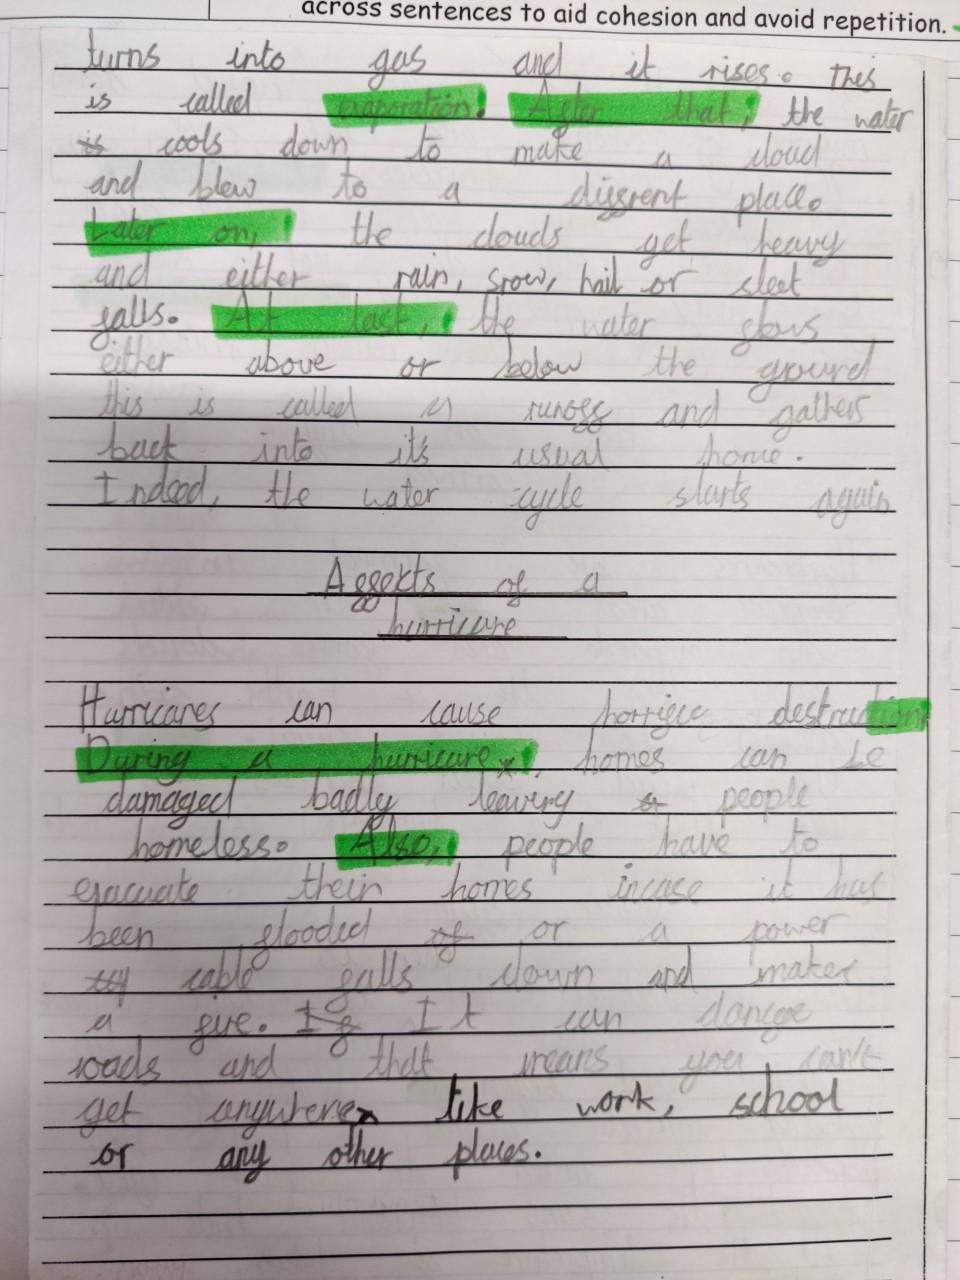 across sentences to aid cohesion and avoid repetition.
turns into gas and it rises. This
is called evaporation. After that, the water
is cools down to make a cloud
and blew to a diffrent place.
Later on, the clouds get heavy
and either rain, snow, hail or sleet
falls. At last, the water flows
either above or below the ground
this is called a runoff and gathers
back into it's usual home.
Indeed, the water cycle starts again
Affekts of a
hurricane
Hurricanes can cause horrific destruction
During a hurricane, homes can be
damaged badly leaveing people
homeless. Also, people have to
evacuate their homes incase it has
been flooded of or a power
cable falls down and makes
a fire. If It can damge
roads and that means you can't
get anywhere like work, school
or any other places.